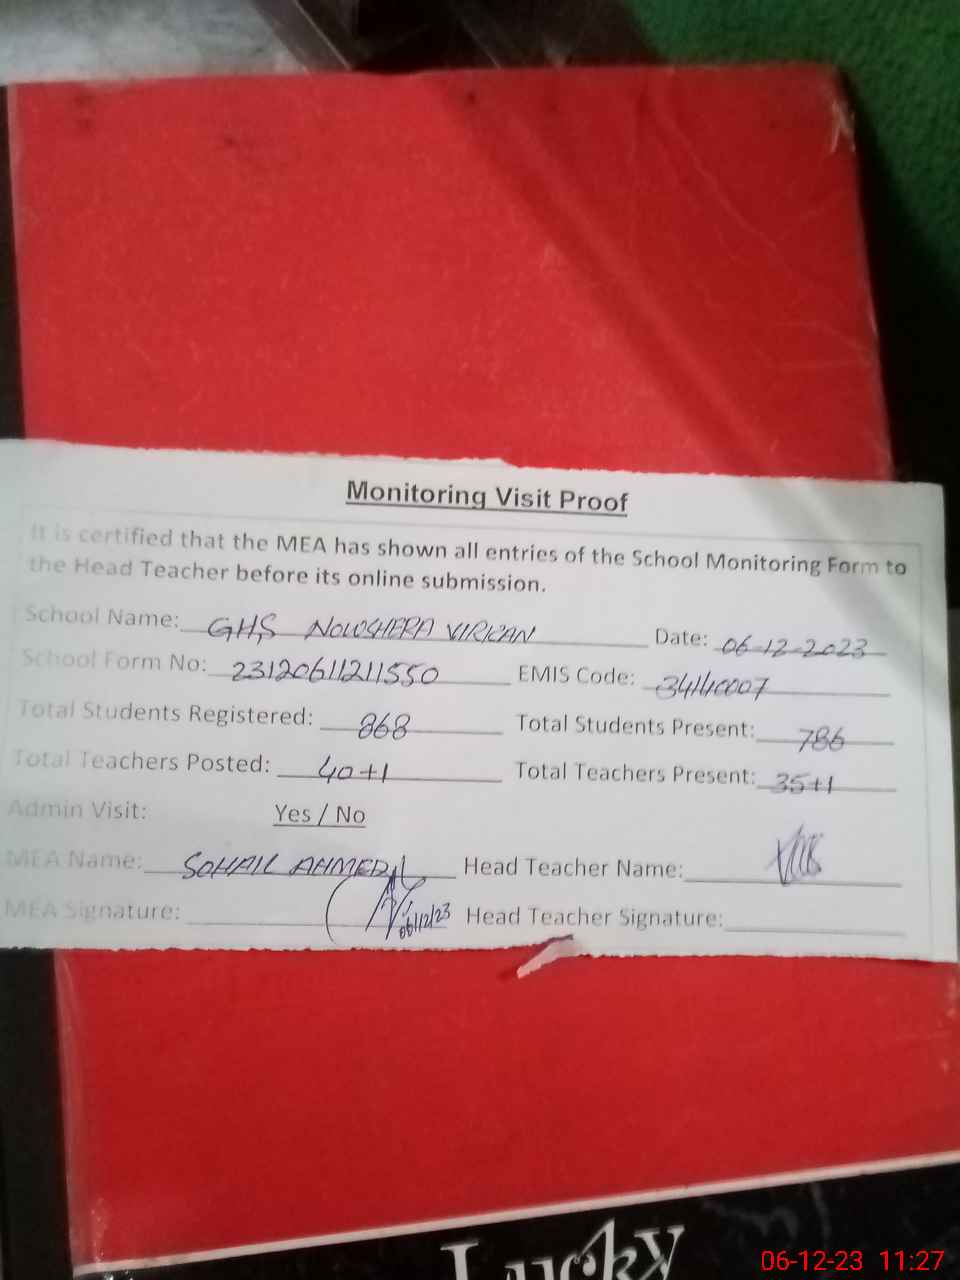 Monitoring Visit Proof
It is certified that the MEA has shown all entries of the School Monitoring Form to
the Head Teacher before its online submission.
School Name: GHS NOWSHERA VIRKAN Date: 06-12-2023
School Form No: 23120611211550 EMIS Code: 34140007
Total Students Registered: 868 Total Students Present: 786
Total Teachers Posted: 40+1 Total Teachers Present: 35+1
Admin Visit: Yes / No
MEA Name: SOHAIL AHMED Head Teacher Name:
MEA Signature: 06/12/23 Head Teacher Signature:
Lucky
06-12-23 11:27